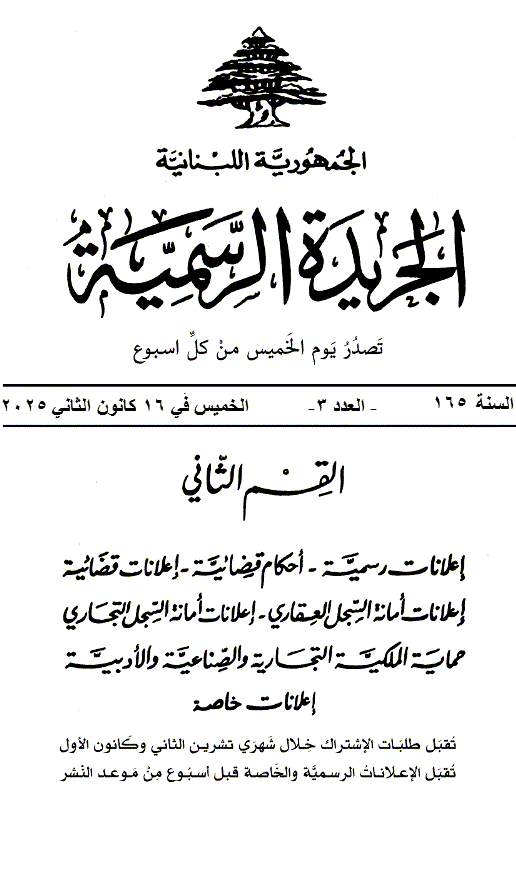 الجُمهُوريَّة اللبْنانيَّة
الجَريدَة الرسَّمِيَّة
تَصدُرُ يَوم الخَميس منْ كلِّ اسبوع
السنة ١٦٥ - العدد ٣- الخميس في ١٦ كانون الثاني ٢٠٢٥
القِسْم الثّاني
إعلانات رسميَّة - أحكام قضائيَّة - إعلانات قضائية
إعلانات أمانة السِّجل العِقاري - إعلانات أمانة السِّجل التّجاري
حماية الملكيَّة التجارية والصِّناعيَّة والأدبيَّة
إعلانات خاصة
تُقبَل طلبَات الإشتراك خِلال شَهرَي تشرين الثاني وكَانون الأول
تُقبَل الإعلاناتُ الرسميَّة والخَاصة قبل أسبُوع مِنْ مَوعد النّشر